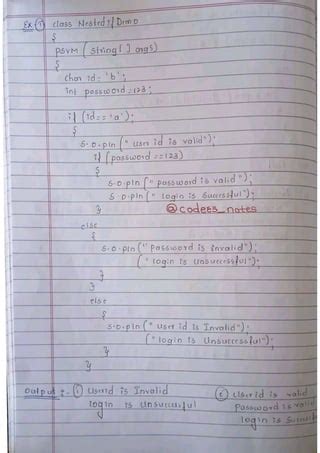 Ex ① class NestedIfDemo
{
psvm ( string [ ] args)
{
char id = 'b' ;
int password = 123 ;
if (id == 'a') ;
{
s.o.pln (" user id is valid") ;
if (password == 123)
{
s.o.pln (" password is valid") ;
s.o.pln (" login is Successful") ;
}
@coders_notes
else
{
s.o.pln (" Password is invalid") ;
(" login is Unsuccessful") ;
}
}
else
{
s.o.pln (" user id is Invalid") ;
(" login is Unsuccessful") ;
}
}
output :- ① Userid is Invalid
login is Unsuccessful
② Userid is valid
Password is valid
login is